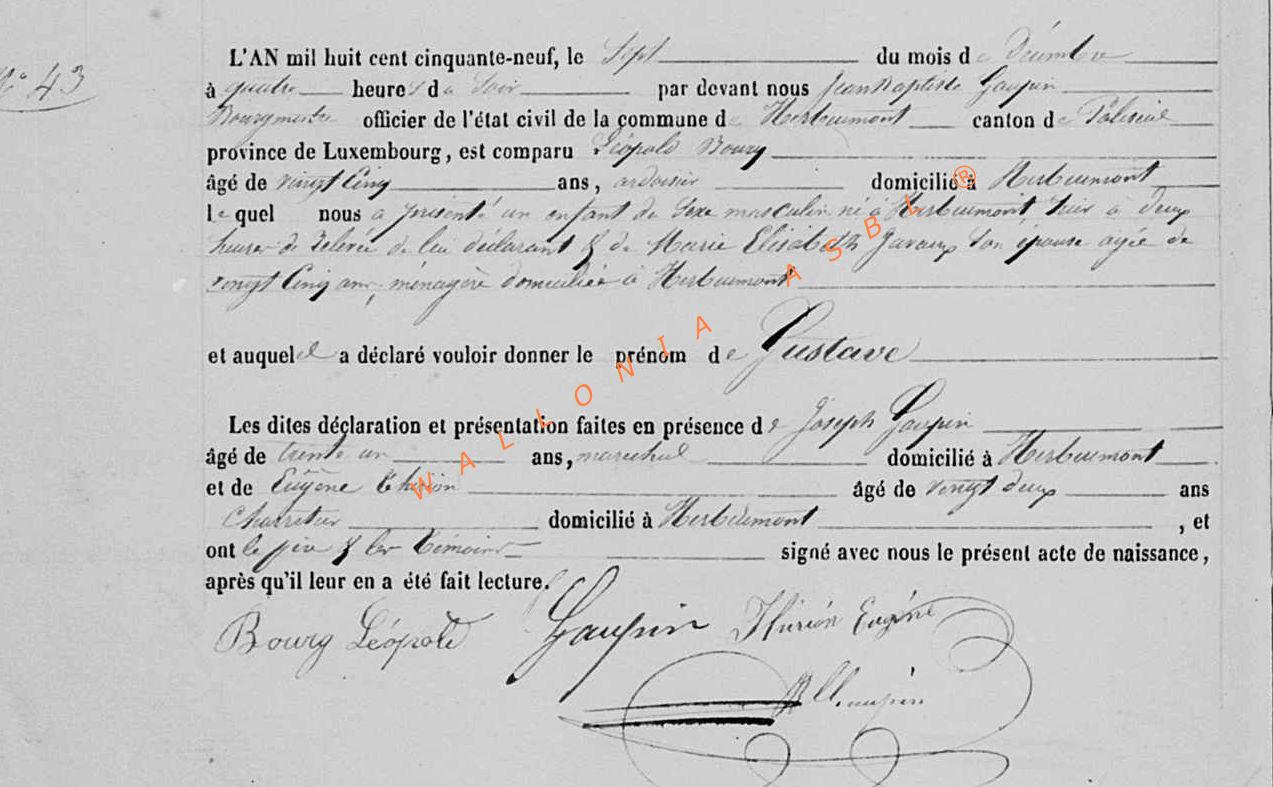 N° 43
L'AN mil huit cent cinquante-neuf, le Sept du mois de Décembre
à quatre heures du Soir par devant nous Jean Baptiste Gaupin
Bourgmestre officier de l'état civil de la commune de Herbeumont canton de Paliseul
province de Luxembourg, est comparu Léopold Bourg
âgé de vingt Cinq ans, ardoisier domicilié à Herbeumont
lequel nous a présenté un enfant de Sexe masculin né à Herbeumont, hier à deux
heures de relevée de lui déclarant & de Marie Elisabeth Javaux Son épouse agée de
vingt Cinq ans, ménagère domiciliée à Herbeumont
et auquel il a déclaré vouloir donner le prénom de Gustave
Les dites déclaration et présentation faites en présence de Joseph Gaupin
âgé de trente un ans, marechal domicilié à Herbeumont
et de Eugène Thirion âgé de vingt deux ans
Charretier domicilié à Herbeumont, et
ont le père & les témoins signé avec nous le présent acte de naissance,
après qu'il leur en a été fait lecture.
Bourg Léopold Gaupin Thirion Eugène
Gaupin
WALLONIA ASBL ®